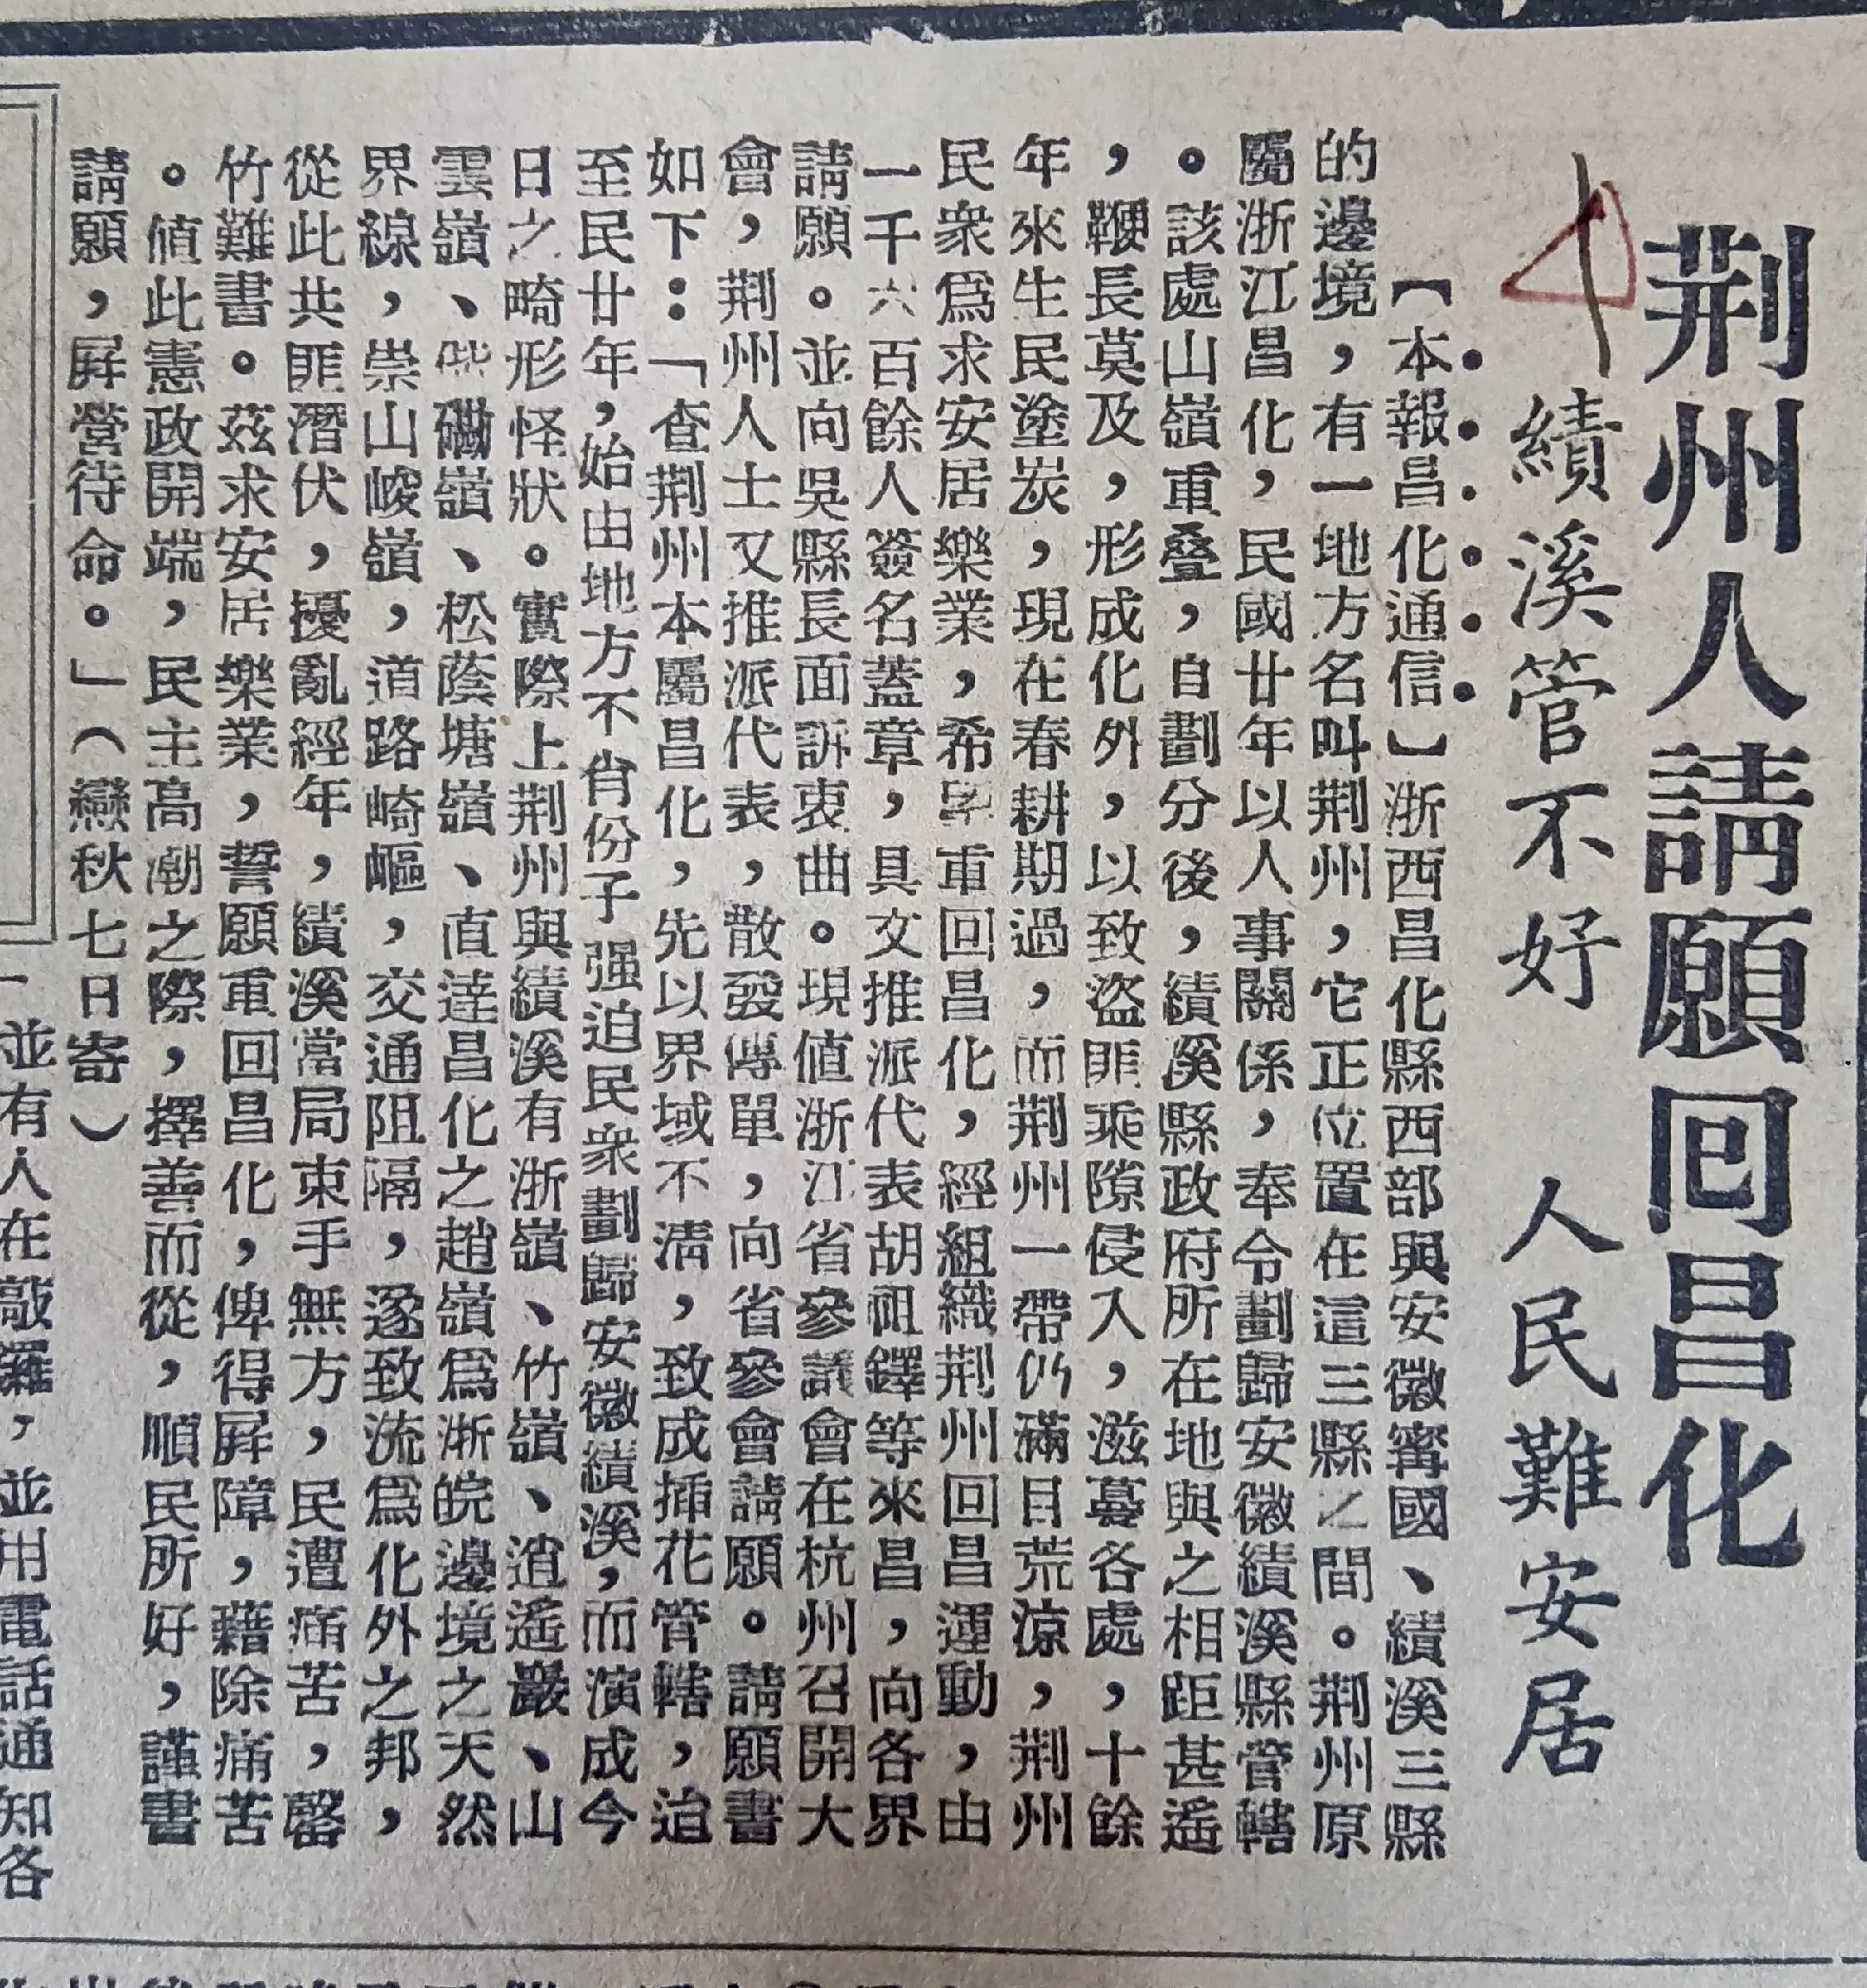 荆州人請願回昌化
績溪管不好　人民難安居
【本報昌化通信】浙西昌化縣西部與安徽寗國、績溪三縣
的邊境，有一地方名叫荆州，它正位置在這三縣之間。荆州原
屬浙江昌化，民國廿年以人事關係，奉令劃歸安徽績溪縣管轄
。該處山嶺重叠，自劃分後，績溪縣政府所在地與之相距甚遙
，鞭長莫及，形成化外，以致盜匪乘隙侵入，滋蔓各處，十餘
年來生民塗炭，現在春耕期過，而荆州一帶仍滿目荒涼，荆州
民衆爲求安居樂業，希望重回昌化，經組織荆州回昌運動，由
一千六百餘人簽名蓋章，具文推派代表胡祖鐸等來昌，向各界
請願。並向吳縣長面訴衷曲。現値浙江省參議會在杭州召開大
會，荆州人士又推派代表，散發傳單，向省參會請願。請願書
如下：「查荆州本屬昌化，先以界域不淸，致成揷花管轄，迨
至民廿年，始由地方不肖份子强迫民衆劃歸安徽績溪，而演成今
日之畸形怪狀。實際上荆州與績溪有浙嶺、竹嶺、逍遙巖、山
雲嶺、磡嶺、松蔭塘嶺、直達昌化之趙嶺爲浙皖邊境之天然
界線，崇山峻嶺，道路崎嶇，交通阻隔，遂致流爲化外之邦，
從此共匪潛伏，擾亂經年，績溪當局束手無方，民遭痛苦，罄
竹難書。茲求安居樂業，誓願重回昌化，俾得屛障，藉除痛苦
。値此憲政開端，民主高潮之際，擇善而從，順民所好，謹書
請願，屛營待命。」（戀秋七日寄）
並有人在敲鑼，並用電話通知各